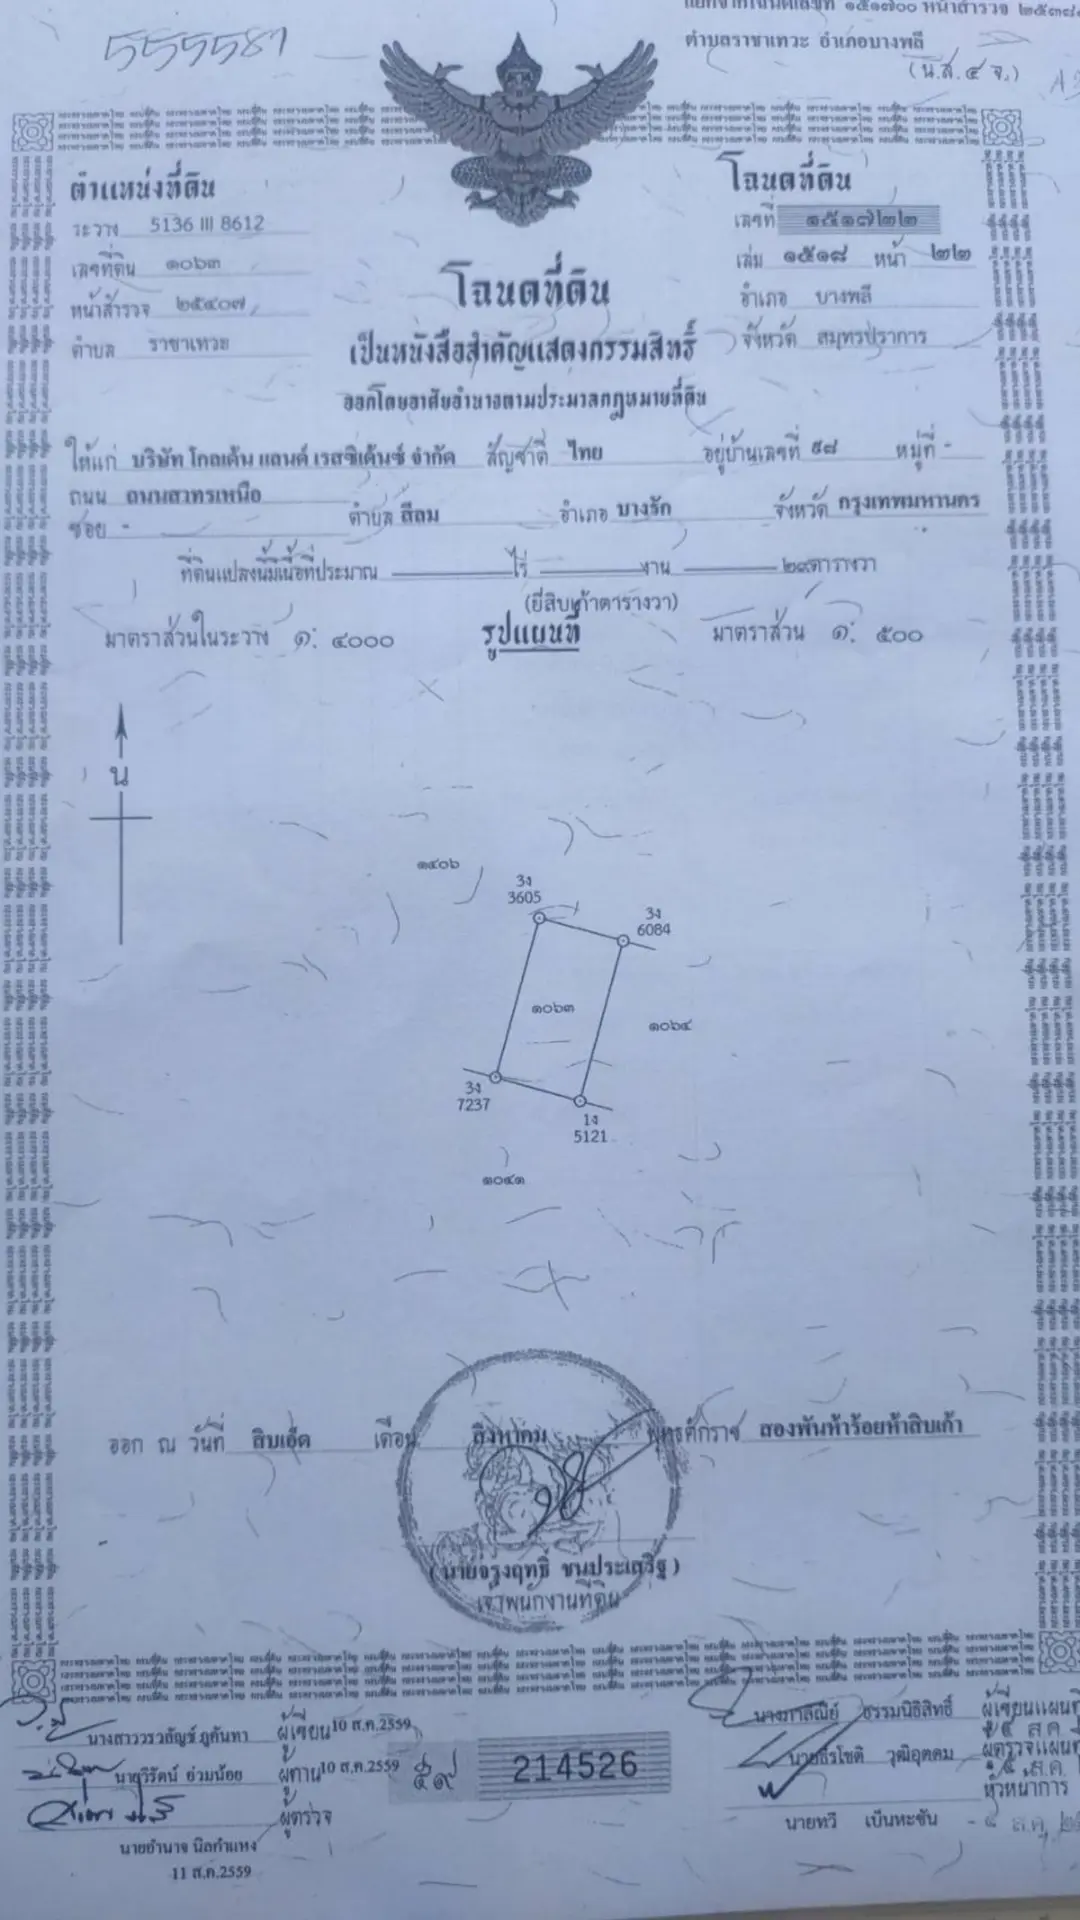 555581
แยกจากโฉนดเลขที่ ๑๕๑๗๐๐ หน้าสำรวจ
ตำบลราชาเทวะ อำเภอบางพลี
(น.ส.๔ จ.)
ตำแหน่งที่ดิน
ระวาง 5136 III 8612
เลขที่ดิน ๑๐๖๓
หน้าสำรวจ ๒๕๔๐๗
ตำบล ราชาเทวะ
โฉนดที่ดิน
เลขที่ ๑๕๑๗๒๒
เล่ม ๑๕๑๘ หน้า ๒๒
อำเภอ บางพลี
จังหวัด สมุทรปราการ
โฉนดที่ดิน
เป็นหนังสือสำคัญแสดงกรรมสิทธิ์
ออกโดยอาศัยอำนาจตามประมวลกฎหมายที่ดิน
ให้แก่ บริษัท โกลเด้น แลนด์ เรสซิเด้นซ์ จำกัด สัญชาติ ไทย อยู่บ้านเลขที่ ๙๘ หมู่ที่ -
ถนน ถนนสาทรเหนือ
ซอย - ตำบล สีลม อำเภอ บางรัก จังหวัด กรุงเทพมหานคร
ที่ดินแปลงนี้มีเนื้อที่ประมาณ ไร่ งาน ๒๙ตารางวา
(ยี่สิบเก้าตารางวา)
มาตราส่วนในระวาง ๑: ๔๐๐๐ รูปแผนที่ มาตราส่วน ๑: ๕๐๐
น
๑๔๐๖
3ง
3605
3ง
6084
๑๐๖๓
๑๐๖๔
3ง
7237
1ง
5121
๑๐๔๑
ออก ณ วันที่ สิบเอ็ด เดือน สิงหาคม พุทธศักราช สองพันห้าร้อยห้าสิบเก้า
(นายจรุงฤทธิ์ ชนประเสริฐ)
เจ้าพนักงานที่ดิน
นางสาววรวลัญช์ ภูคันทา ผู้เขียน 10 ส.ค.2559
นายวิรัตน์ อ่วมน้อย ผู้ทาน 10 ส.ค.2559
ผู้ตรวจ
นายอำนาจ นิลกำแหง
11 ส.ค.2559
๕๙ 214526
นางภาสิณีย์ ธรรมนิธิสิทธิ์ ผู้เขียนแผนที่
นายธีรโชติ วุฒิอุตตม ผู้ตรวจแผนที่
หัวหน้าการ
นายทวี เบ็นหะซัน